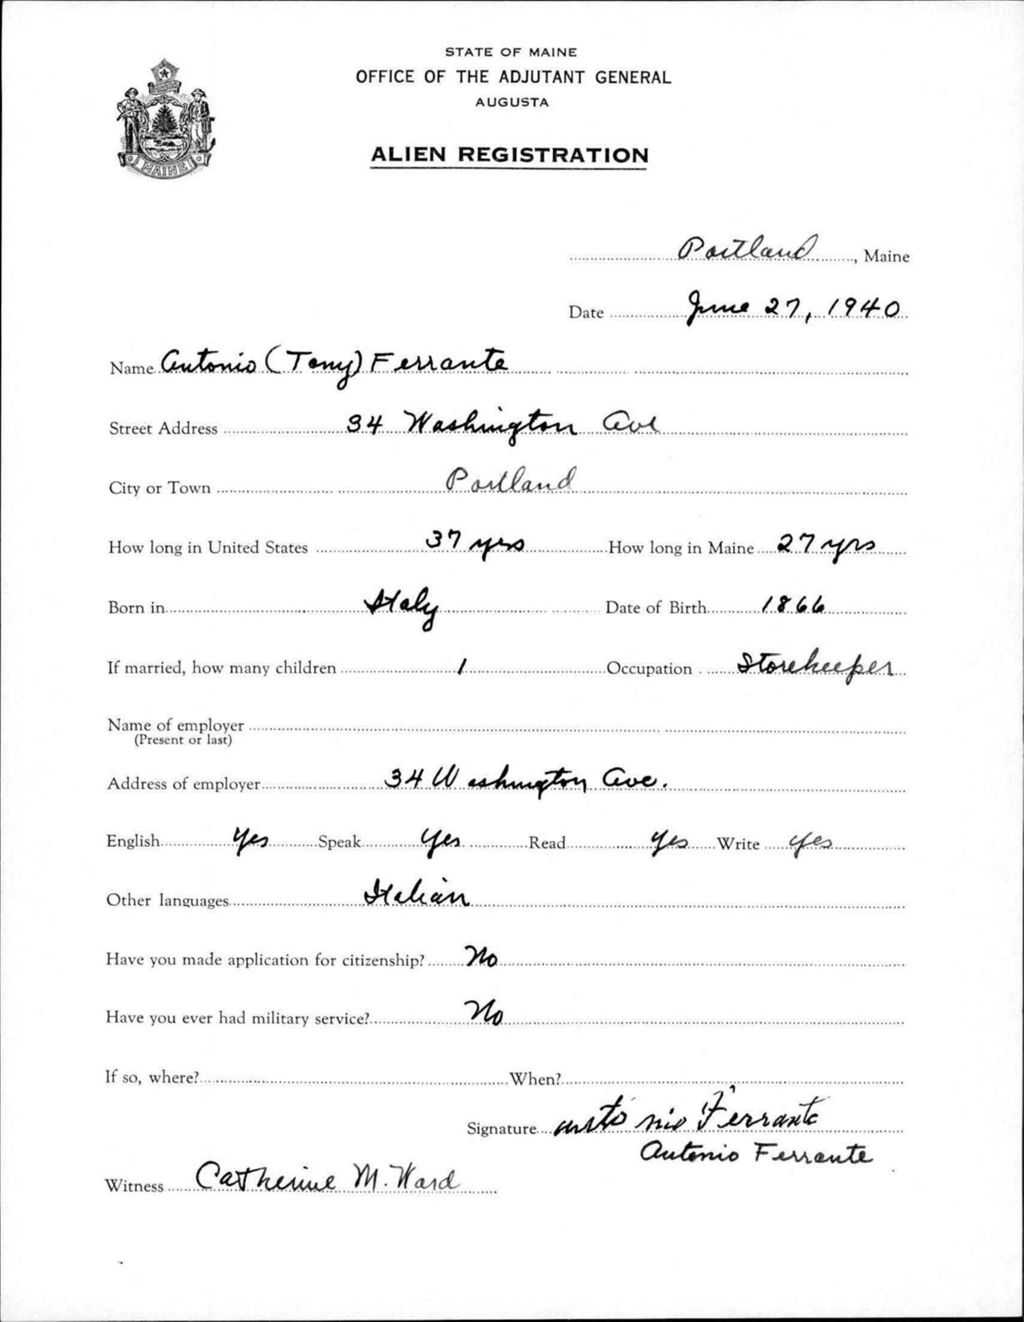 STATE OF MAINE
OFFICE OF THE ADJUTANT GENERAL
AUGUSTA
ALIEN REGISTRATION
MAINE
Portland, Maine
Date June 27, 1940
Name Antonio (Tony) Ferrante
Street Address 34 Washington Ave
City or Town Portland
How long in United States 37 yrs How long in Maine 27 yrs
Born in Italy Date of Birth 1866
If married, how many children 1 Occupation Storekeeper
Name of employer
(Present or last)
Address of employer 34 Washington Ave.
English Yes Speak Yes Read Yes Write Yes
Other languages Italian
Have you made application for citizenship? No
Have you ever had military service? No
If so, where? When?
Signature Antonio Ferrante
Antonio Ferrante
Witness Catherine M. Ward